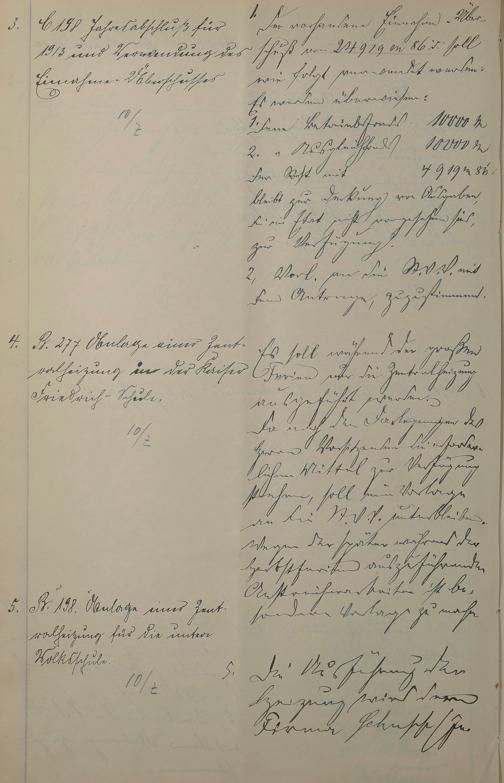 3. C 198 Jahresabschluß für
1913 und Verwendung des
Einnahme-Überschusses
10/2
1. Der vorhandene Einnahme-Über-
schuß von 24919 M 86 soll
wie folgt verwendet werden:
Es werden überwiesen:
1. Dem Betriebsfonds 10000 M
2. " Ausgleichsfonds 10000 M
Der Rest mit 4919 M 86
bleibt zur Deckung von Ausgaben,
die im Etat nicht vorgesehen sind,
zur Verfügung.
2, Vorl. an die St.V.V. mit
dem Antrage, zuzustimmen.
4. B. 277 Anlage einer Zent-
ralheizung in der Kaiser
Friedrich-Schule.
10/2
Es soll während der großen
Ferien nur die Zentralheizung
ausgeführt werden.
Da nach den Darlegungen des
Herrn Vorsitzenden die erforder-
lichen Mittel zur Verfügung
stehen, soll eine Vorlage
an die St.V.V. unterbleiben.
Wegen der später während der
Herbstferien auszuführenden
Anstreicherarbeiten ist be-
sondere Vorlage zu machen
5. B. 198. Anlage einer Zent-
ralheizung für die untere
Volksschule.
10/2
5. Die Ausführung der
Heizung wird der
Firma